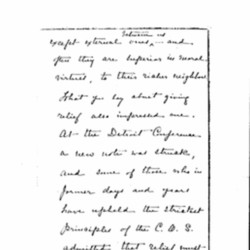 between us
except external ones, and
often they are superior in moral
virtues, to their richer neighbor
What you say about giving
relief also impressed me.
At the Detroit Conference
a new note was struck,
and some of those who in
former days and years
have upheld the strictest
principles of the C.O.S.
admitted that relief must